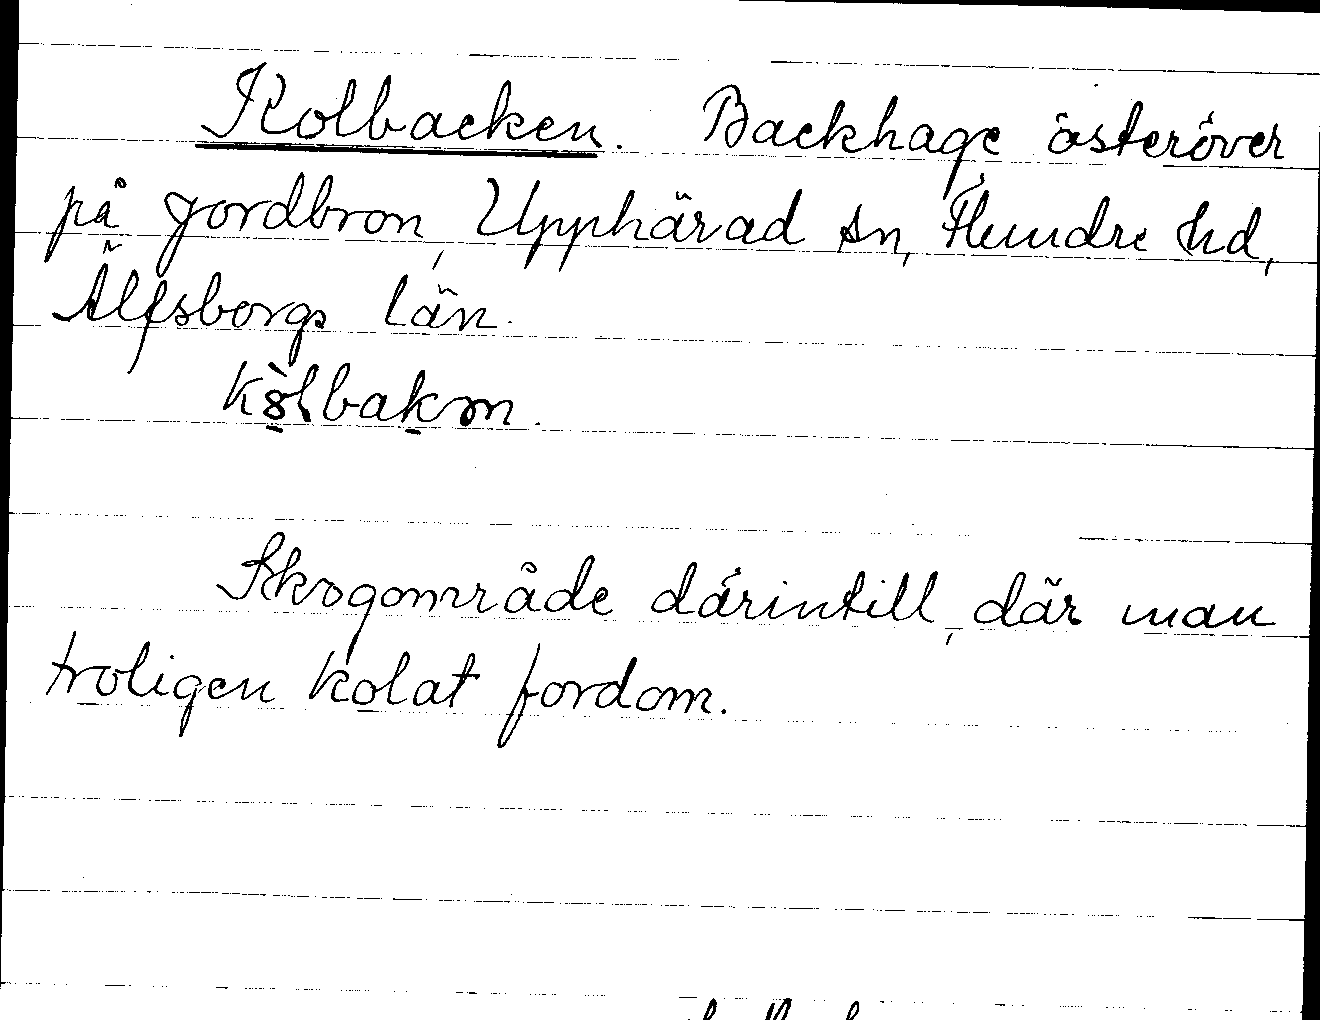 Kolbacken. Backhage österöver
på Jordbron, Upphärad sn, Flundre hd,
Älfsborgs län.
Skogområde därintill, där man
troligen kolat fordom.